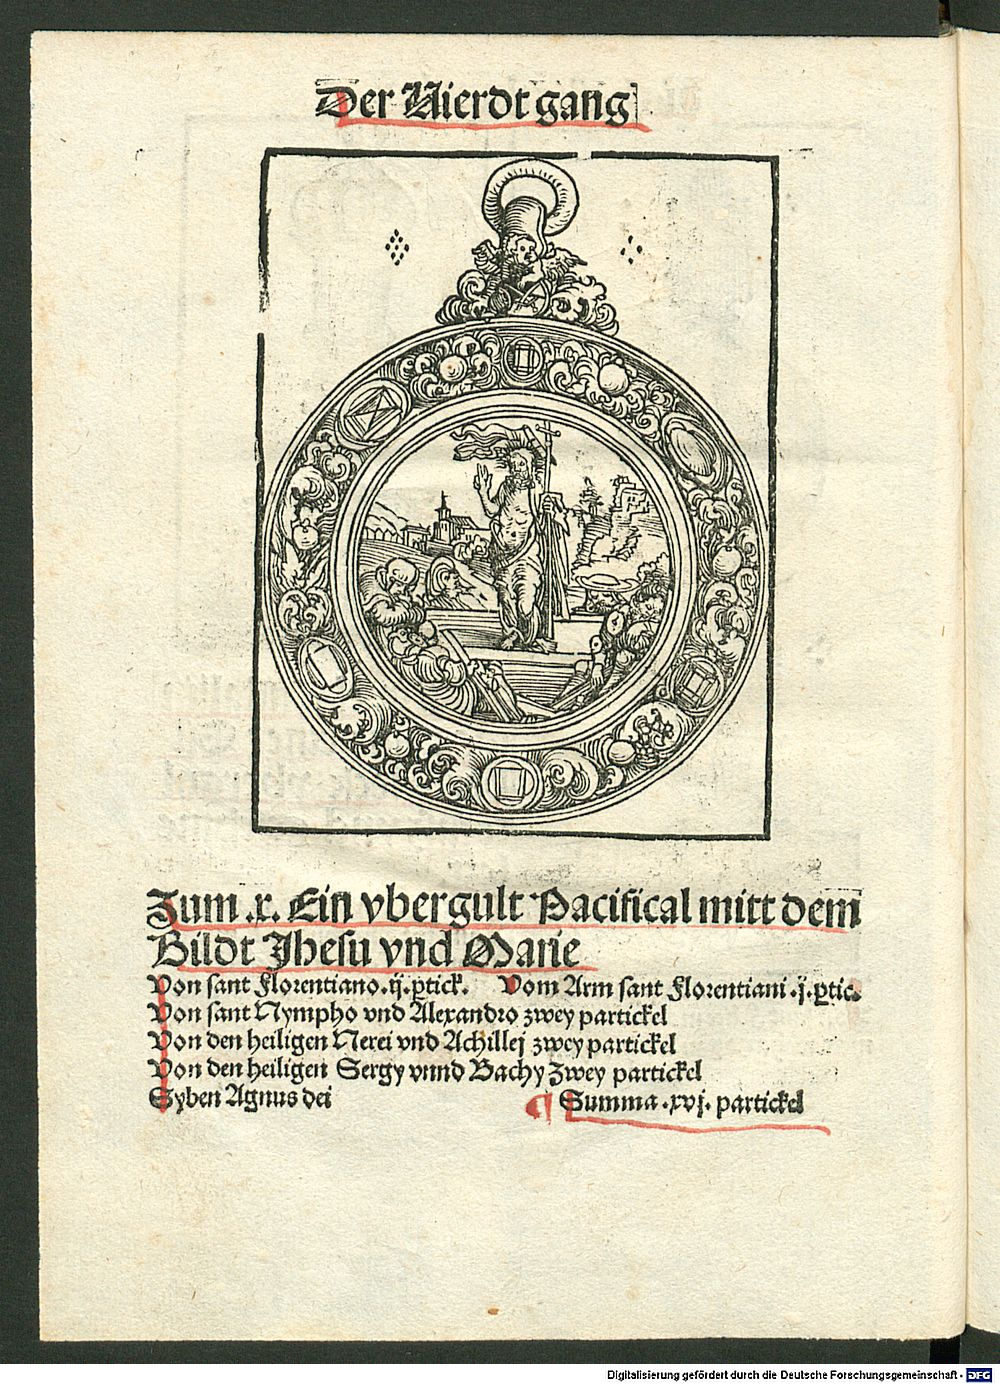 Der Vierdt gang
Zum .x. Ein vbergult Pacifical mitt dem
Bildt Jhesu vnd Marie
Von sant Florentiano .ij. ꝑtick. Vom Arm sant Florentiani .j. ꝑtic.
Von sant Nympho vnd Alexandro zwey partickel
Von den heiligen Nerei vnd Achillej zwey partickel
Von den heiligen Sergy vnnd Bachy Zwey partickel
Syben Agnus dei ¶ Summa .xvj. partickel
Digitalisierung gefördert durch die Deutsche Forschungsgemeinschaft - DFG